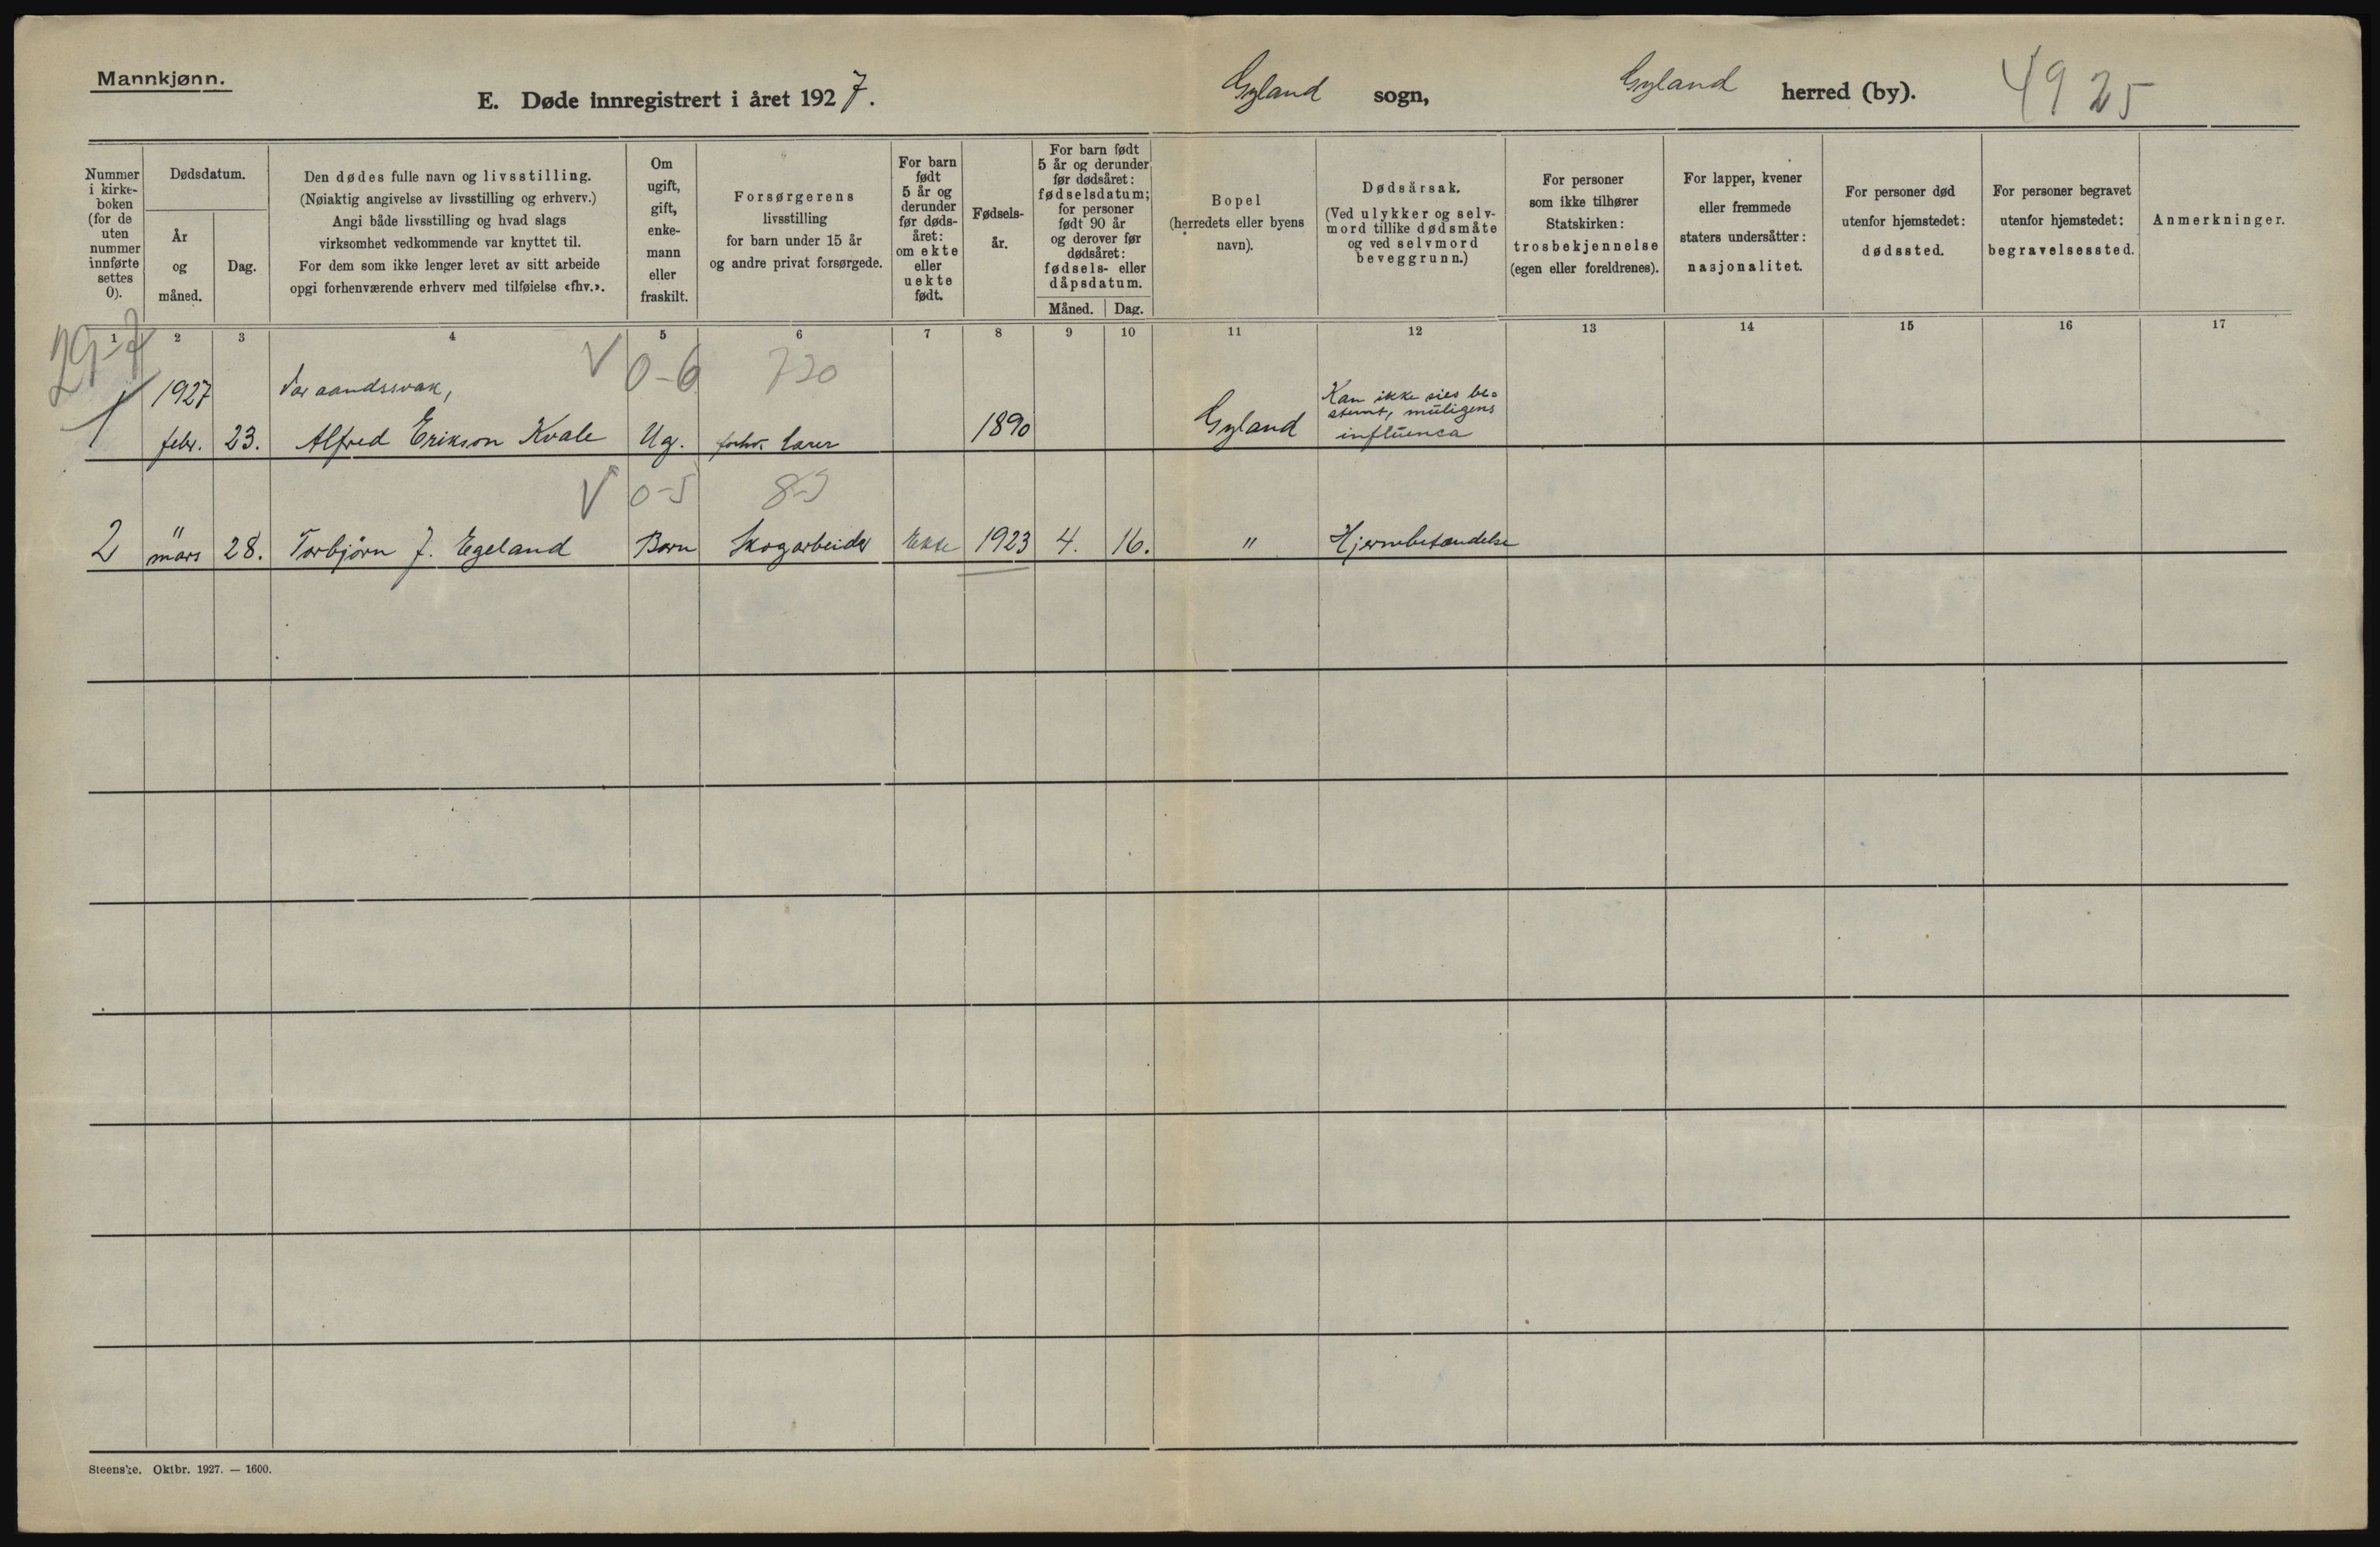 Mannkjønn.
E. Døde innregistrert i året 1927.
Gyland sogn,
Gyland herred (by).
4925
Nummer
i kirke-
boken
(for de
uten
nummer
innførte
settes
0).
Dødsdatum.
År
og
måned.
Dag.
Den dødes fulle navn og livsstilling.
(Nøiaktig angivelse av livsstilling og erhverv.)
Angi både livsstilling og hvad slags
virksomhet vedkommende var knyttet til.
For dem som ikke lenger levet av sitt arbeide
opgi forhenværende erhverv med tilføielse «fhv.».
Om
ugift,
gift,
enke-
mann
eller
fraskilt.
Forsørgerens
livsstilling
for barn under 15 år
og andre privat forsørgede.
For barn
født
5 år og
derunder
før døds-
året:
om ekte
eller
uekte
født.
Fødsels-
år.
For barn født
5 år og derunder
før dødsåret:
fødselsdatum;
for personer
født 90 år
og derover før
dødsåret:
fødsels- eller
dåpsdatum.
Måned. Dag.
Bopel
(herredets eller byens
navn).
Dødsårsak.
(Ved ulykker og selv-
mord tillike dødsmåte
og ved selvmord
beveggrunn.)
For personer
som ikke tilhører
Statskirken:
trosbekjennelse
(egen eller foreldrenes).
For lapper, kvener
eller fremmede
staters undersåtter:
nasjonalitet.
For personer død
utenfor hjemstedet:
dødssted.
For personer begravet
utenfor hjemstedet:
begravelsessted.
Anmerkninger.
1 2 3 4 5 6 7 8 9 10 11 12 13 14 15 16 17
29-7
V 0-6 720
1927 Var aandssvak, Kan ikke sies be-
stemt, muligens
1 febr. 23. Alfred Erikson Kvale Ug. forhv. lærer 1890 Gyland influenca
V 0-5
2 " mars 28. Torbjørn J. Egeland Barn Skogarbeider Ekte 1923 4. 16. " Hjernebetændelse
Steenske. Oktbr. 1927. — 1600.